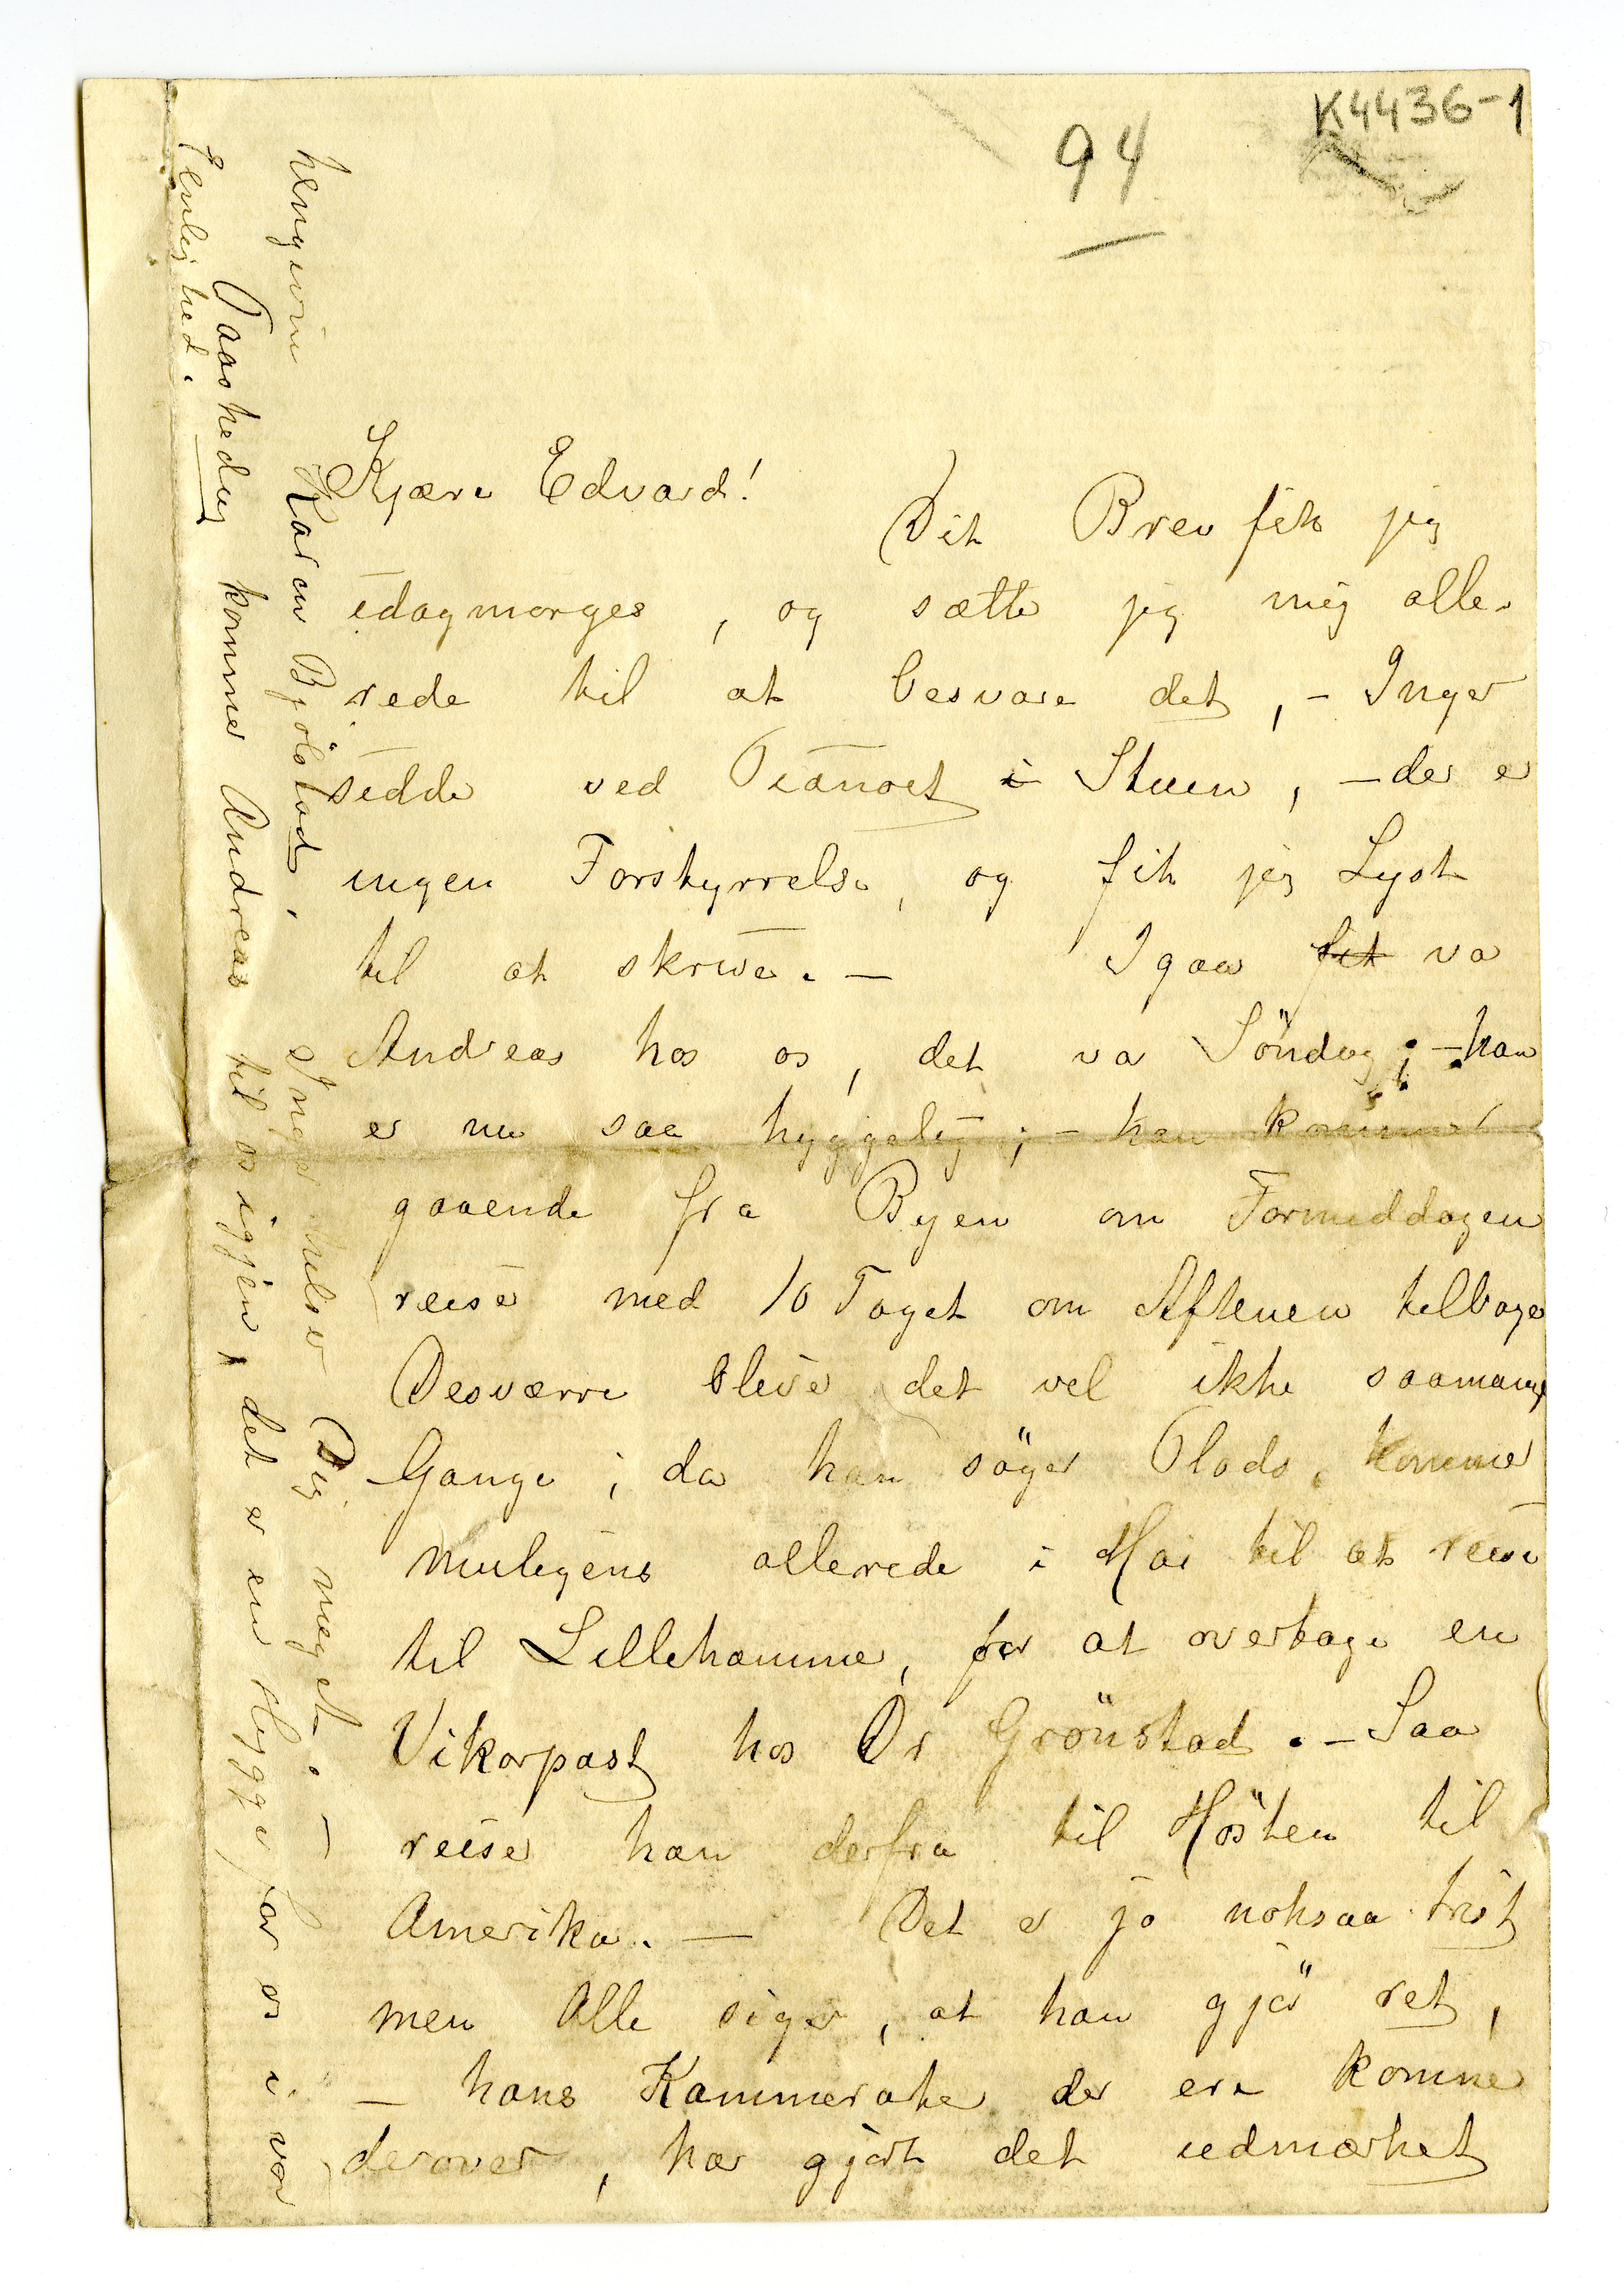 K4436-1
94
Kjære Edvard!
Dit Brev fik jeg
idagmorges, og sætte jeg mig alle-
rede til at besvare det, - Inger
sidde ved Pianoet i Stuen, - der er
ingen Forstyrrelse, og fik jeg Lyst
til at skrive. — Igaar fik va
Andreas hos os, det va Söndag; - han
er nu saa hyggelig; - han kommer
gaaende fra Byen om Formiddagen
reiser med 10 Toget om Aftenen tilbage
Desværre bliver det vel ikke saamange
Gange; da han söger Plads, komme
muligens allerede i Mai til at reise
til Lillehamme, for at overtage en
Vikarpost hos Dr Grönstad. - Saa
reiser han derfra til Hösten til
Amerika. — Det er jo noksaa trist
men Alle siger, at han gjör ret,
- hans Kammerater der ere komne
derover, har gjort det udmærket
hengivne Karen Bjölstad.
Inger hilser Dig meget. —
Paaskedag kommer Andreas til os igjen, det er en Hygge for os i vor
Eenlighed.